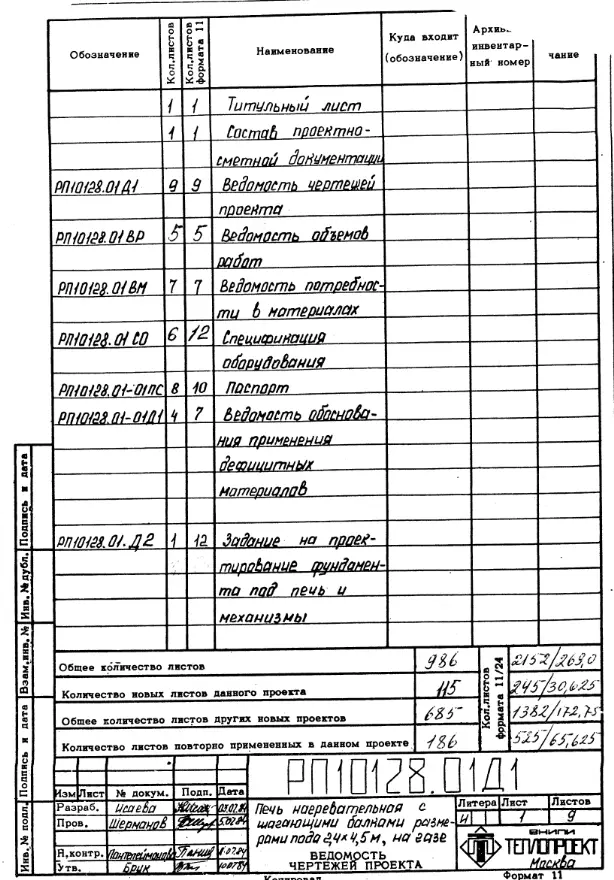 Обозначение Кол.листов Кол.листов формата 11 Наименование Куда входит (обозначение) инвентар- ный номер чание
1 1 Титульный лист
1 1 Состав проектно-
сметной документации
РП10128.01Д1 9 9 Ведомость чертежей
проекта
РП10128.01ВР 5 5 Ведомость объемов
работ
РП10128.01ВМ 7 7 Ведомость потребнос-
ти в материалах
РП10128.01СО 6 12 Спецификация
оборудования
РП10128.01-01ПС 8 10 Паспорт
РП10128.01-01Д1 4 7 Ведомость обоснова-
ния применения
дефицитных
материалов
РП10128.01.Д2 1 12 Задание на проек-
тирование фундамен-
та под печь и
механизмы
Общее количество листов 986 Кол.листов формата 11/24 2152/269,0
Количество новых листов данного проекта 115 245/30,625
Общее количество листов других новых проектов 685 1382/172,75
Количество листов повторно примененных в данном проекте 186 525/65,625
Инв.№ подл. Подпись и дата Взам.инв.№ Инв.№ дубл. Подпись и дата
РП10128.01Д1
Изм Лист № докум. Подп. Дата
Разраб. Исаева
Пров. Шерманов
Н.контр. Пантелеймонова
Утв. Брик
Печь нагревательная с
шагающими балками разме-
рами пода 2,4×4,5м, на газе
ВЕДОМОСТЬ
ЧЕРТЕЖЕЙ ПРОЕКТА
Литера Лист Листов
И 1 9
ВНИПИ
ТЕПЛОПРОЕКТ
Москва
Копировал Формат 11